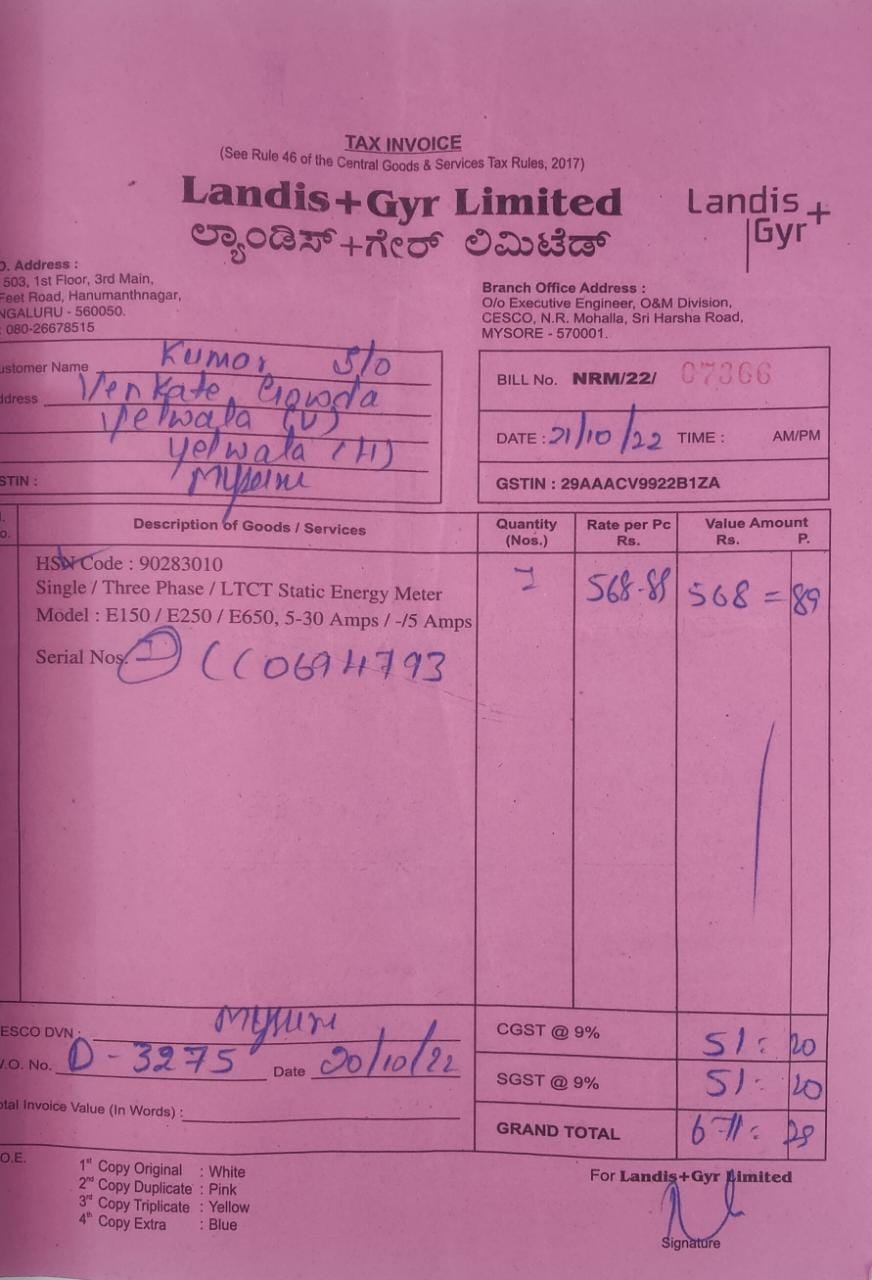 TAX INVOICE
(See Rule 46 of the Central Goods & Services Tax Rules, 2017)
Landis+Gyr Limited
ಲ್ಯಾಂಡಿಸ್+ಗೇರ್ ಲಿಮಿಟೆಡ್
Landis+
Gyr
O. Address :
503, 1st Floor, 3rd Main,
Feet Road, Hanumanthnagar,
NGALURU - 560050.
: 080-26678515
Branch Office Address :
O/o Executive Engineer, O&M Division,
CESCO, N.R. Mohalla, Sri Harsha Road,
MYSORE - 570001.
ustomer Name Kumar S/o
ddress Venkate Gowda
Yelwala (V)
Yelwala (H)
STIN : Mysuru
BILL No. NRM/22/ 07366
DATE : 21/10/22 TIME : AM/PM
GSTIN : 29AAACV9922B1ZA
o. Description of Goods / Services Quantity (Nos.) Rate per Pc Rs. Value Amount Rs. P.
HSN Code : 90283010
Single / Three Phase / LTCT Static Energy Meter 1 568-89 568 = 89
Model : E150 / E250 / E650, 5-30 Amps / -/5 Amps
Serial Nos. 1 CC0694793
ESCO DVN : Mysuru
V.O. No. D - 3275 Date 20/10/22
otal Invoice Value (In Words) :
CGST @ 9% 51 : 20
SGST @ 9% 51 - 20
GRAND TOTAL 671 : 29
O.E.
1st Copy Original : White
2nd Copy Duplicate : Pink
3rd Copy Triplicate : Yellow
4th Copy Extra : Blue
For Landis+Gyr Limited
Signature